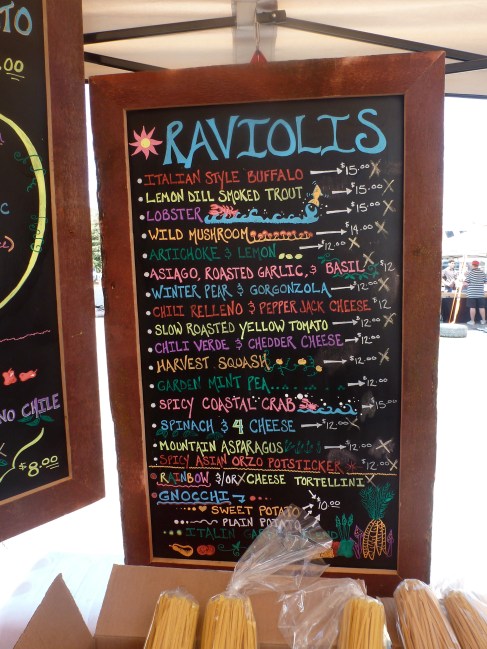 TO
.00
NO CHILE
$8.00
RAVIOLIS
• ITALIAN STYLE BUFFALO → $15.00 X
• LEMON DILL SMOKED TROUT → $15.00 X
• LOBSTER → $15.00 X
• WILD MUSHROOM → $14.00 X
• ARTICHOKE & LEMON → $12.00 X
• ASIAGO, ROASTED GARLIC, & BASIL $12
• WINTER PEAR & GORGONZOLA → $12.00 X
• CHILI RELLENO & PEPPER JACK CHEESE $12
• SLOW ROASTED YELLOW TOMATO → $12.00
• CHILI VERDE & CHEDDER CHEESE → $12.00
• HARVEST SQUASH → $12.00 X
• GARDEN MINT PEA → $12.00
• SPICY COASTAL CRAB → $15.00
• SPINACH & 4 CHEESE → $12.00 X
• MOUNTAIN ASPARAGUS → $12.00 X
• SPICY ASIAN ORZO POTSTICKER → $12.00 X
• RAINBOW &/OR X CHEESE TORTELLINI X
• GNOCCHI
SWEET POTATO → $10.00
PLAIN POTATO
ITALIN